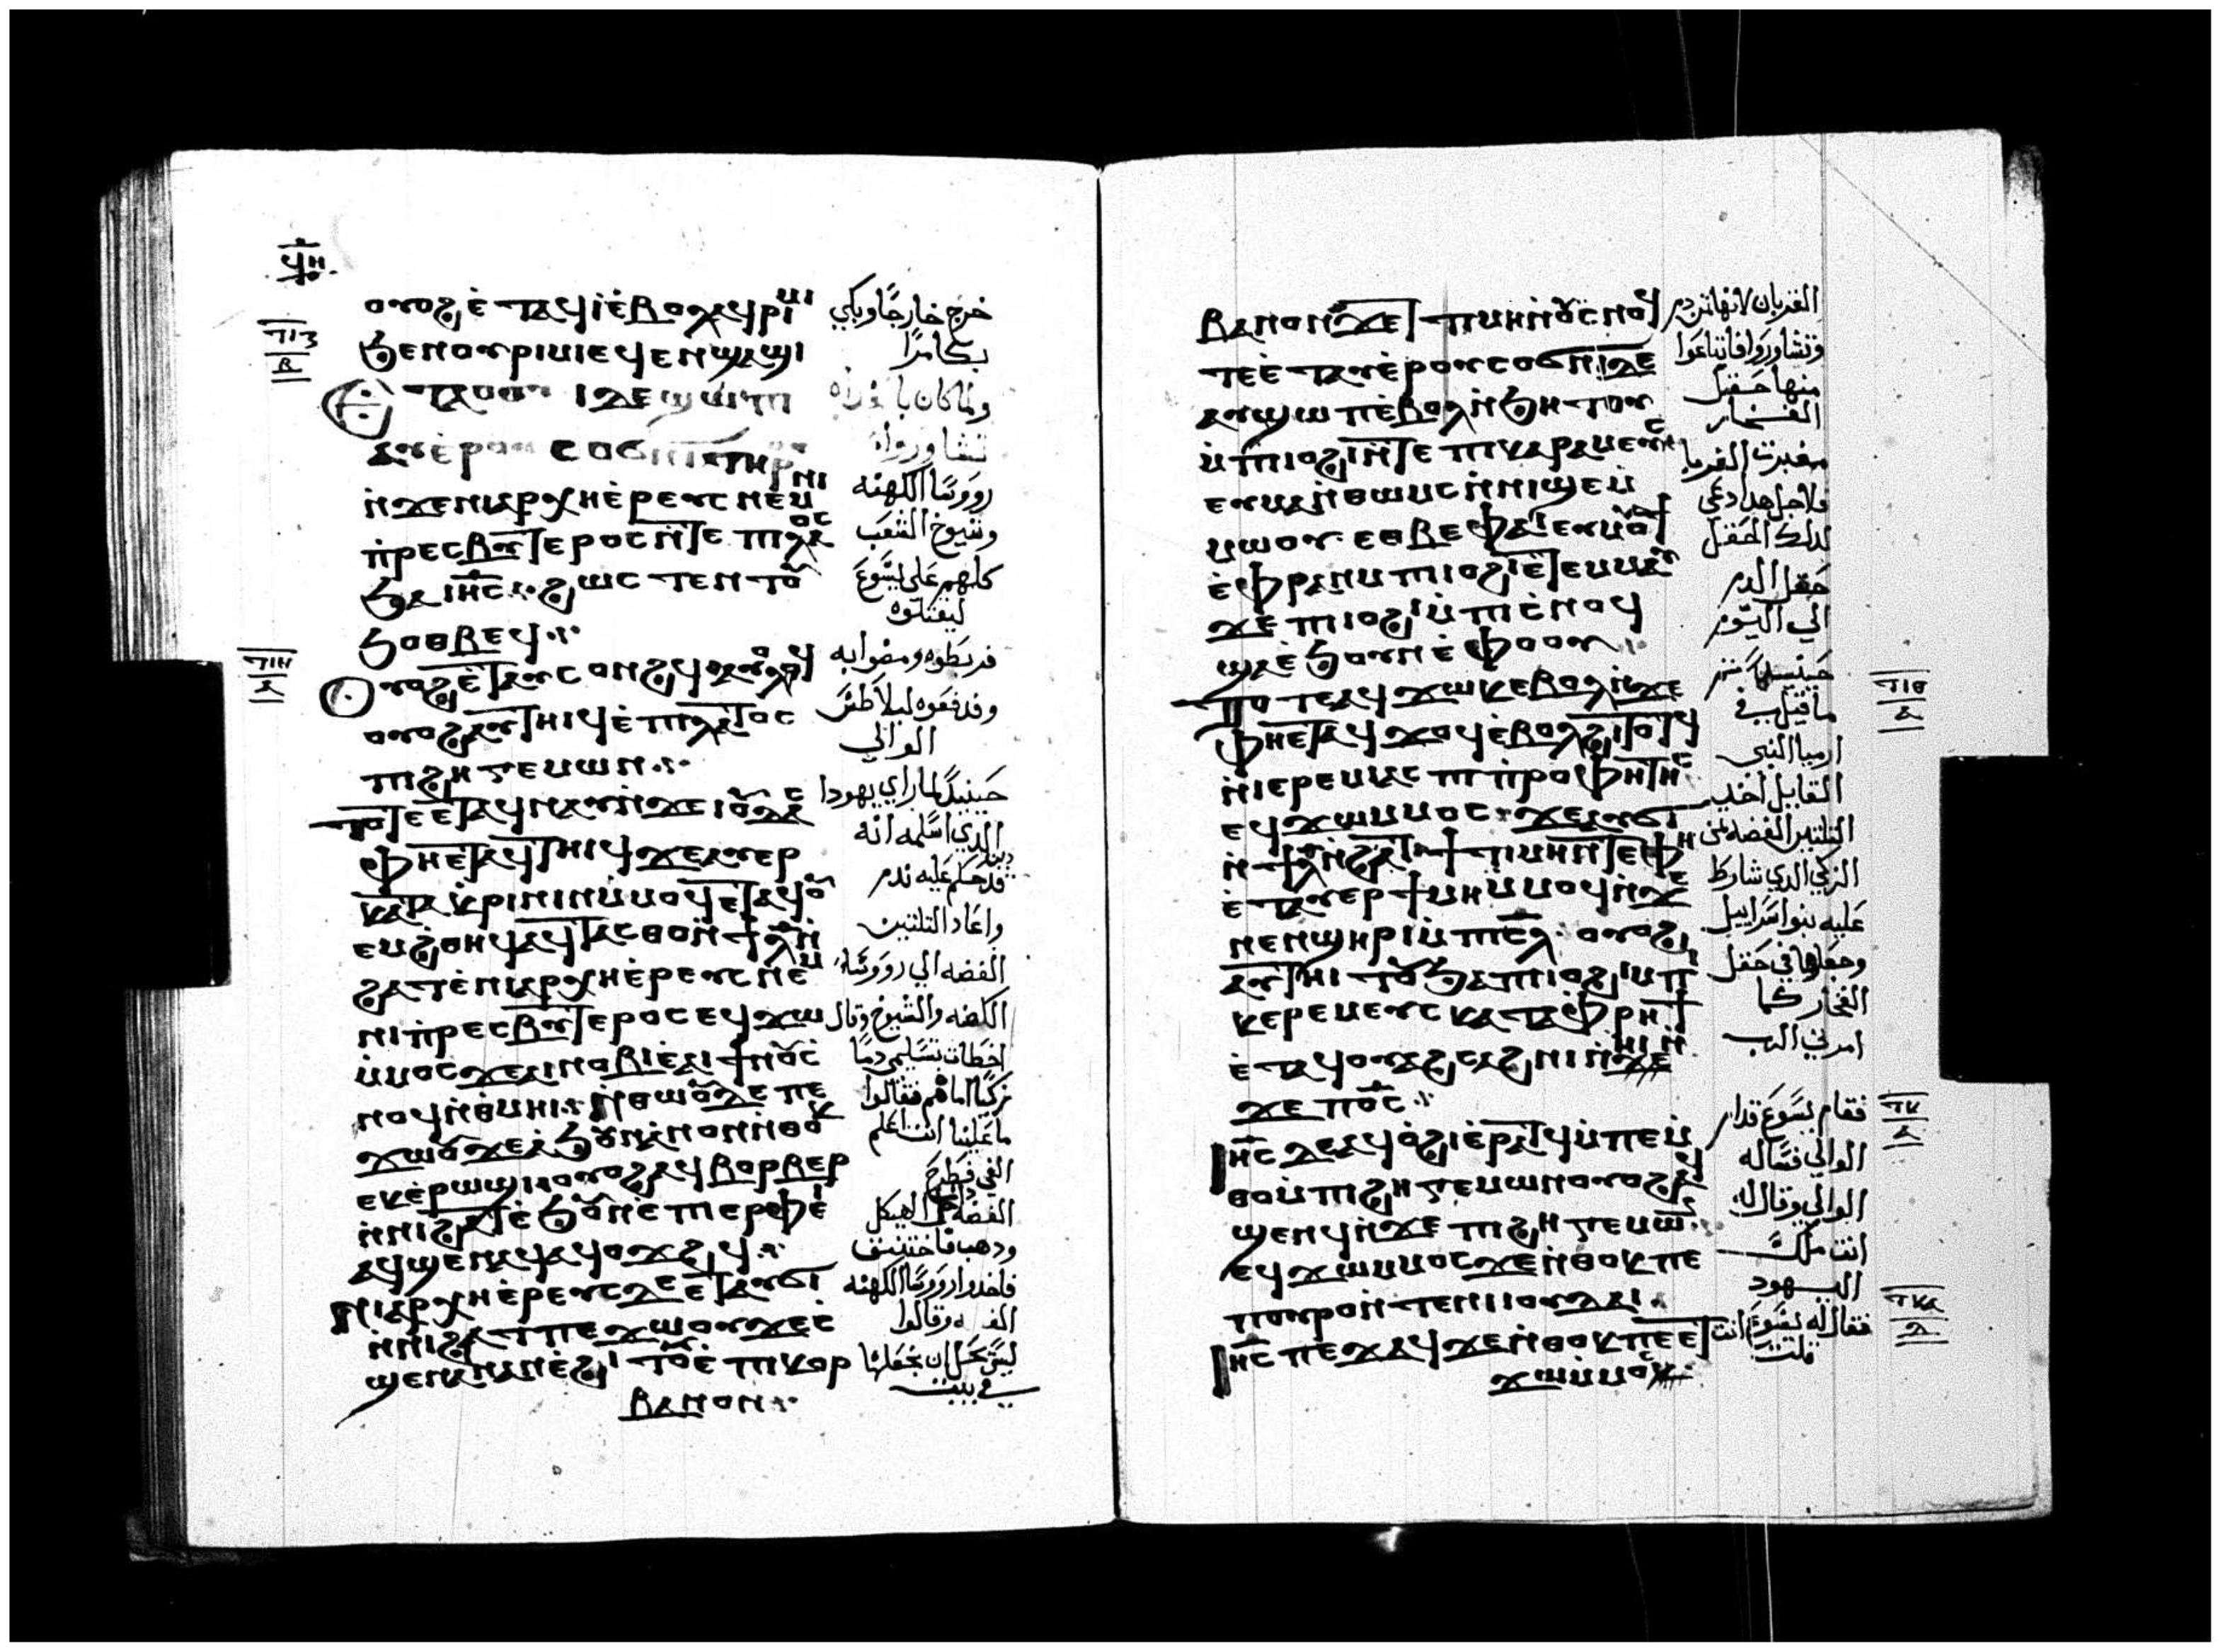 ϥⲏ
ⲟⲩⲟϩ ⲉ̀ⲧⲁϥⲓ̀ ⲉ̀ⲃⲟⲗ ⲁϥⲣⲓⲙⲓ
ϧⲉⲛⲟⲩⲣⲓⲙⲓ ⲉϥⲉⲛϣⲁϣⲓ
ⲉⲣⲟⲩ ⲥⲟϭⲛⲓ ⲧⲏⲣⲟⲩ
ⲛ̀ϫⲉⲛⲓⲁⲣⲭⲏⲉ̀ⲣⲉⲩⲥ ⲛⲉⲙ ⲛⲓ
ⲡ̀ⲣⲉⲥⲃⲩⲧⲉⲣⲟⲥ ⲛ̀ⲧⲉ ⲡⲓⲗⲁⲟⲥ
ϧⲁ ⲓⲏⲥ ϩⲱⲥ ⲧⲉⲛⲧⲟⲩ
ϧⲟⲑⲃⲉϥ
ⲟⲩⲟϩ ⲉ̀ⲧⲁⲩⲥⲟⲛϩϥ ⲁⲩⲟⲗϥ
ⲟⲩⲟϩ ⲁⲩⲧⲏⲓϥ ⲉ̀ⲡⲓⲗⲁⲧⲟⲥ
ⲡⲓϩⲏⲅⲉⲙⲱⲛ
ⲧⲟⲧⲉ ⲉⲧⲁϥⲛⲁⲩ ⲛ̀ϫⲉ ⲓⲟⲩⲇⲁⲥ
ⲫⲏⲉ̀ⲧⲁϥⲧⲏⲓϥ ϫⲉ ⲁⲩⲉⲣ
ⲕⲁⲧⲁⲕ̀ⲣⲓⲛⲓⲛ ⲙ̀ⲙⲟϥ ⲉⲧⲁϥⲟⲩ
ⲉⲙϩ̀ⲑⲏϥ ⲁϥⲧⲁⲥⲑⲟ ⲛ̀ϯⲗ ⲛ̀
ϩⲁⲧ ⲉ̀ⲛⲓⲁⲣⲭⲏⲉ̀ⲣⲉⲩⲥ ⲛⲉⲙ
ⲛⲓⲡ̀ⲣⲉⲥⲃⲩⲧⲉⲣⲟⲥ ⲉϥϫⲱ
ⲙ̀ⲙⲟⲥ ϫⲉ ⲁⲓⲉⲣⲛⲟⲃⲓ ⲉ̀ⲁⲓϯ ⲛⲟⲩⲥ̀
ⲛⲟϥ ⲛ̀ⲑ̀ⲙⲏⲓ ⲛ̀ⲑⲱⲟⲩ ⲇⲉ ⲡⲉ
ϫⲱⲟⲩ ϫⲉ ⲁ̀ϧⲟⲛ ⲁ̀ⲛⲟⲛ ⲛ̀ⲑⲟⲕ
ⲉⲕⲉ̀ⲣⲱϣⲓ ⲟⲩⲟϩ ⲁϥⲃⲟⲣⲃⲉⲣ
ⲛ̀ⲛⲓϩⲁⲧ ⲉ̀ϧⲟⲩⲛ ⲉ̀ⲡⲓⲉⲣⲫⲉⲓ
ⲁϥϣⲉⲛⲁϥ ⲁϥⲟϫϩϥ
ⲛⲓⲁⲣⲭⲏⲉ̀ⲣⲉⲩⲥ ⲇⲉ ⲉⲧⲁⲩϭⲓ
ⲛ̀ⲛⲓϩⲁⲧ ⲡⲉϫⲱⲟⲩ ϫⲉ ⲥ̀
ϣⲉ ⲛⲁⲛ ⲁⲛ ⲉ̀ϩⲓⲧⲟⲩ ⲉ̀ⲡⲓⲕⲟⲣ
ⲃⲁⲛⲟⲛ
خرج خارجًا وبكي
بكا مرًا
ولما كان باكراه
تشاوروا
رووسا الكهنه
وشيوخ الشعب
كلهم علي يسوع
ليقتلوه
فربطوه ومضوا به
ودفعوه لبيلاطس
الوالي
حينيدً لما راي يهودا
الدي اسلمه انه
قد حكم عليه ندم
واعاد التلتين
الفضه الي رووسا
الكهنه والشيوخ وقال
اخطات بتسليمي دمًا
زكيًا اما هم فقالوا
ما علينا انت اعلم
الفضه في الهيكل
ودهب فاختنق
فاخدوا رووسا الكهنه
الفضه وقالوا
ليس يحل ان نجعلها
في بيت
ⲃⲁⲛⲟⲛ ϫⲉ ⲧⲓⲙⲏ ⲛⲟⲩⲥ̀ⲛⲟϥ
ⲧⲉ ⲉ̀ⲧⲁⲩⲉ̀ⲣⲟⲩⲥⲟϭⲛⲓ ⲇⲉ
ⲁⲩϣⲱⲡ ⲉ̀ⲃⲟⲗ ⲛ̀ϧⲏⲧⲟⲩ
ⲙ̀ⲡⲓⲟϩⲓ ⲛ̀ⲧⲉ ⲡⲓⲕⲉⲣⲁⲙⲉⲩⲥ
ⲉⲩⲙⲁ ⲛ̀ⲑⲱⲙⲥ ⲛ̀ⲛⲓϣⲉⲙ
ⲙⲱⲟⲩ ⲉⲑⲃⲉ ⲫⲁⲓ ⲉⲩⲙⲟⲩϯ
ⲉ̀ⲫⲣⲁⲛ ⲙ̀ⲡⲓⲟϩⲓ ⲉⲧⲉⲙⲙⲁⲩ
ϫⲉ ⲡⲓⲟϩⲓ ⲙ̀ⲡⲓⲥ̀ⲛⲟϥ
ϣⲁ ⲉ̀ϧⲟⲩⲛ ⲉ̀ⲫⲟⲟⲩ
ⲧⲟⲧⲉ ⲁϥϫⲱⲕ ⲉⲃⲟⲗ ⲛ̀ϫⲉ
ⲫⲏⲉⲧⲁϥϫⲟϥ ⲉ̀ⲃⲟⲗϩⲓⲧⲟⲧϥ
ⲛ̀ⲓⲉⲣⲉⲙⲓⲁⲥ ⲡⲓⲡ̀ⲣⲟⲫⲏⲧⲏⲥ
ⲉϥϫⲱ ⲙⲙⲟⲥ ϫⲉ ⲁⲩϭⲓ
ⲛ̀ϯⲗ ⲛ̀ϩⲁⲧ ϯⲧⲓⲙⲏ ⲛ̀ⲧⲉ ⲫⲏ
ⲉ̀ⲧⲁⲩⲉⲣϯⲙⲏ ⲙ̀ⲙⲟϥ ⲛ̀ϫⲉ
ⲛⲉⲛϣⲏⲣⲓ ⲙ̀ⲡⲓⲥⲗ ⲟⲩⲟϩ
ⲁⲩⲧⲏⲓⲧⲟⲩ ϧⲁ ⲡⲓⲟϩⲓ ⲙ̀ⲡⲓ
ⲕⲉⲣⲉⲙⲉⲩⲥ ⲕⲁⲧⲁ ⲫ̀ⲣⲏϯ
ⲉ̀ⲧⲁϥⲟⲩⲁϩⲥⲁϩⲛⲓ ⲛⲏⲓ ⲛ̀
ϫⲉ ⲡⲟⲥ
ⲓⲏⲥ ⲇⲉ ⲁϥⲟ̀ϩⲓ ⲉ̀ⲣⲁⲧϥ ⲙ̀ⲡⲉⲙ̀
ⲑⲟ ⲙ̀ⲡⲓϩⲏⲅⲉⲙⲱⲛ ⲟⲩⲟϩ ⲁϥ
ϣⲉⲛϥ ⲛ̀ϫⲉ ⲡⲓϩⲏⲅⲉⲙⲱⲛ
ⲉϥϫⲱ ⲙⲙⲟⲥ ϫⲉ ⲛ̀ⲑⲟⲕ ⲡⲉ
ⲡⲟⲩⲣⲟ ⲛ̀ⲧⲉ ⲛⲓⲓⲟⲩⲇⲁⲓ
ⲓⲏⲥ ⲡⲉϫⲁϥ ϫⲉ ⲛ̀ⲑⲟⲕ ⲡⲉⲧ
ϫⲱ ⲙ̀ⲙⲟⲥ
القربان لانها تمن دم
وتشاوروا فابتاعوا
منها حقل
الفخار
مقبرت الغربا
فلاجل هدا دعي
دلك الحقل
حقل الدم
الي اليوم
حينيد تم
ما قيل في
ارميا النبي
القايل اخدت
التلتين الفضه تمن
الزكي الدي شارط
عليه بنوا اسراييل
وجعلوها في حقل
الفخار كما
امرني الرب
فقام يسوع قدام
الوالي فساله
الوالي وقال له
انت ملك
اليهود
فقال له يسوع انت
قلت